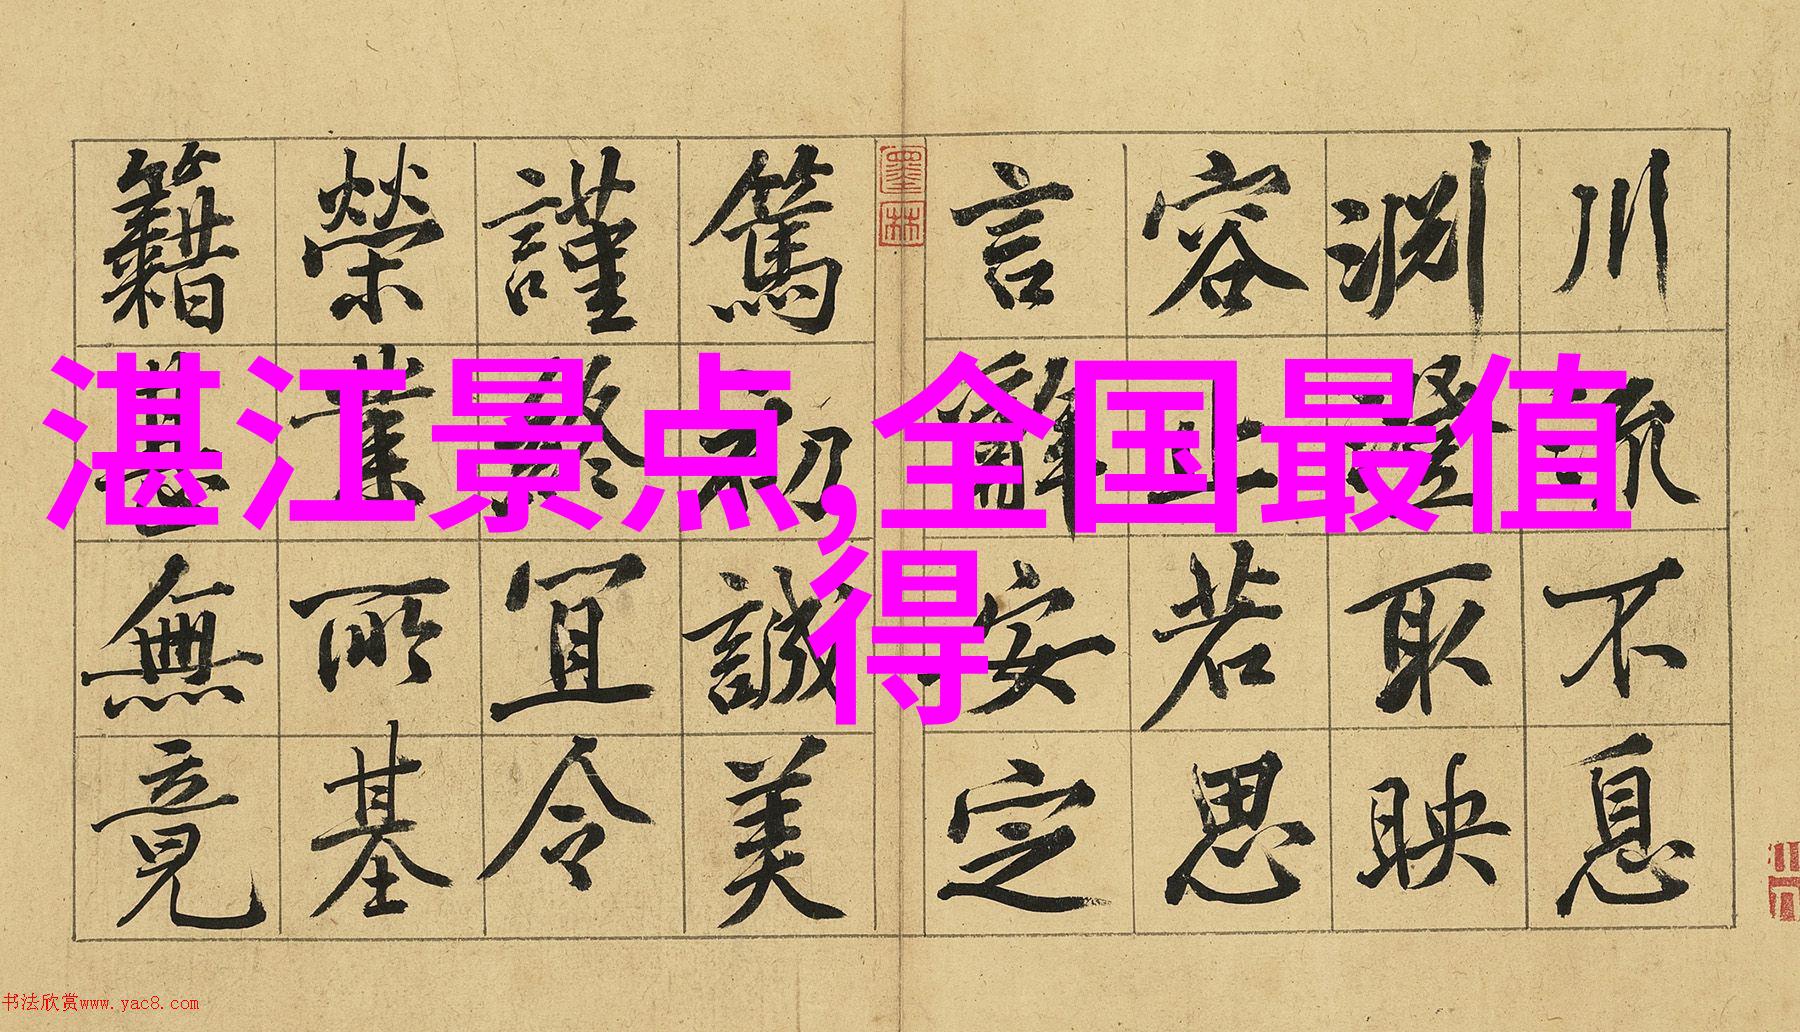 湛江景点,全国最值
得
川流不息
淵澄取映
容止若思
言辭安定
墨林
篤初誠美
謹終宜令
榮業所基
籍甚無竟
书法欣赏www.yac8.com